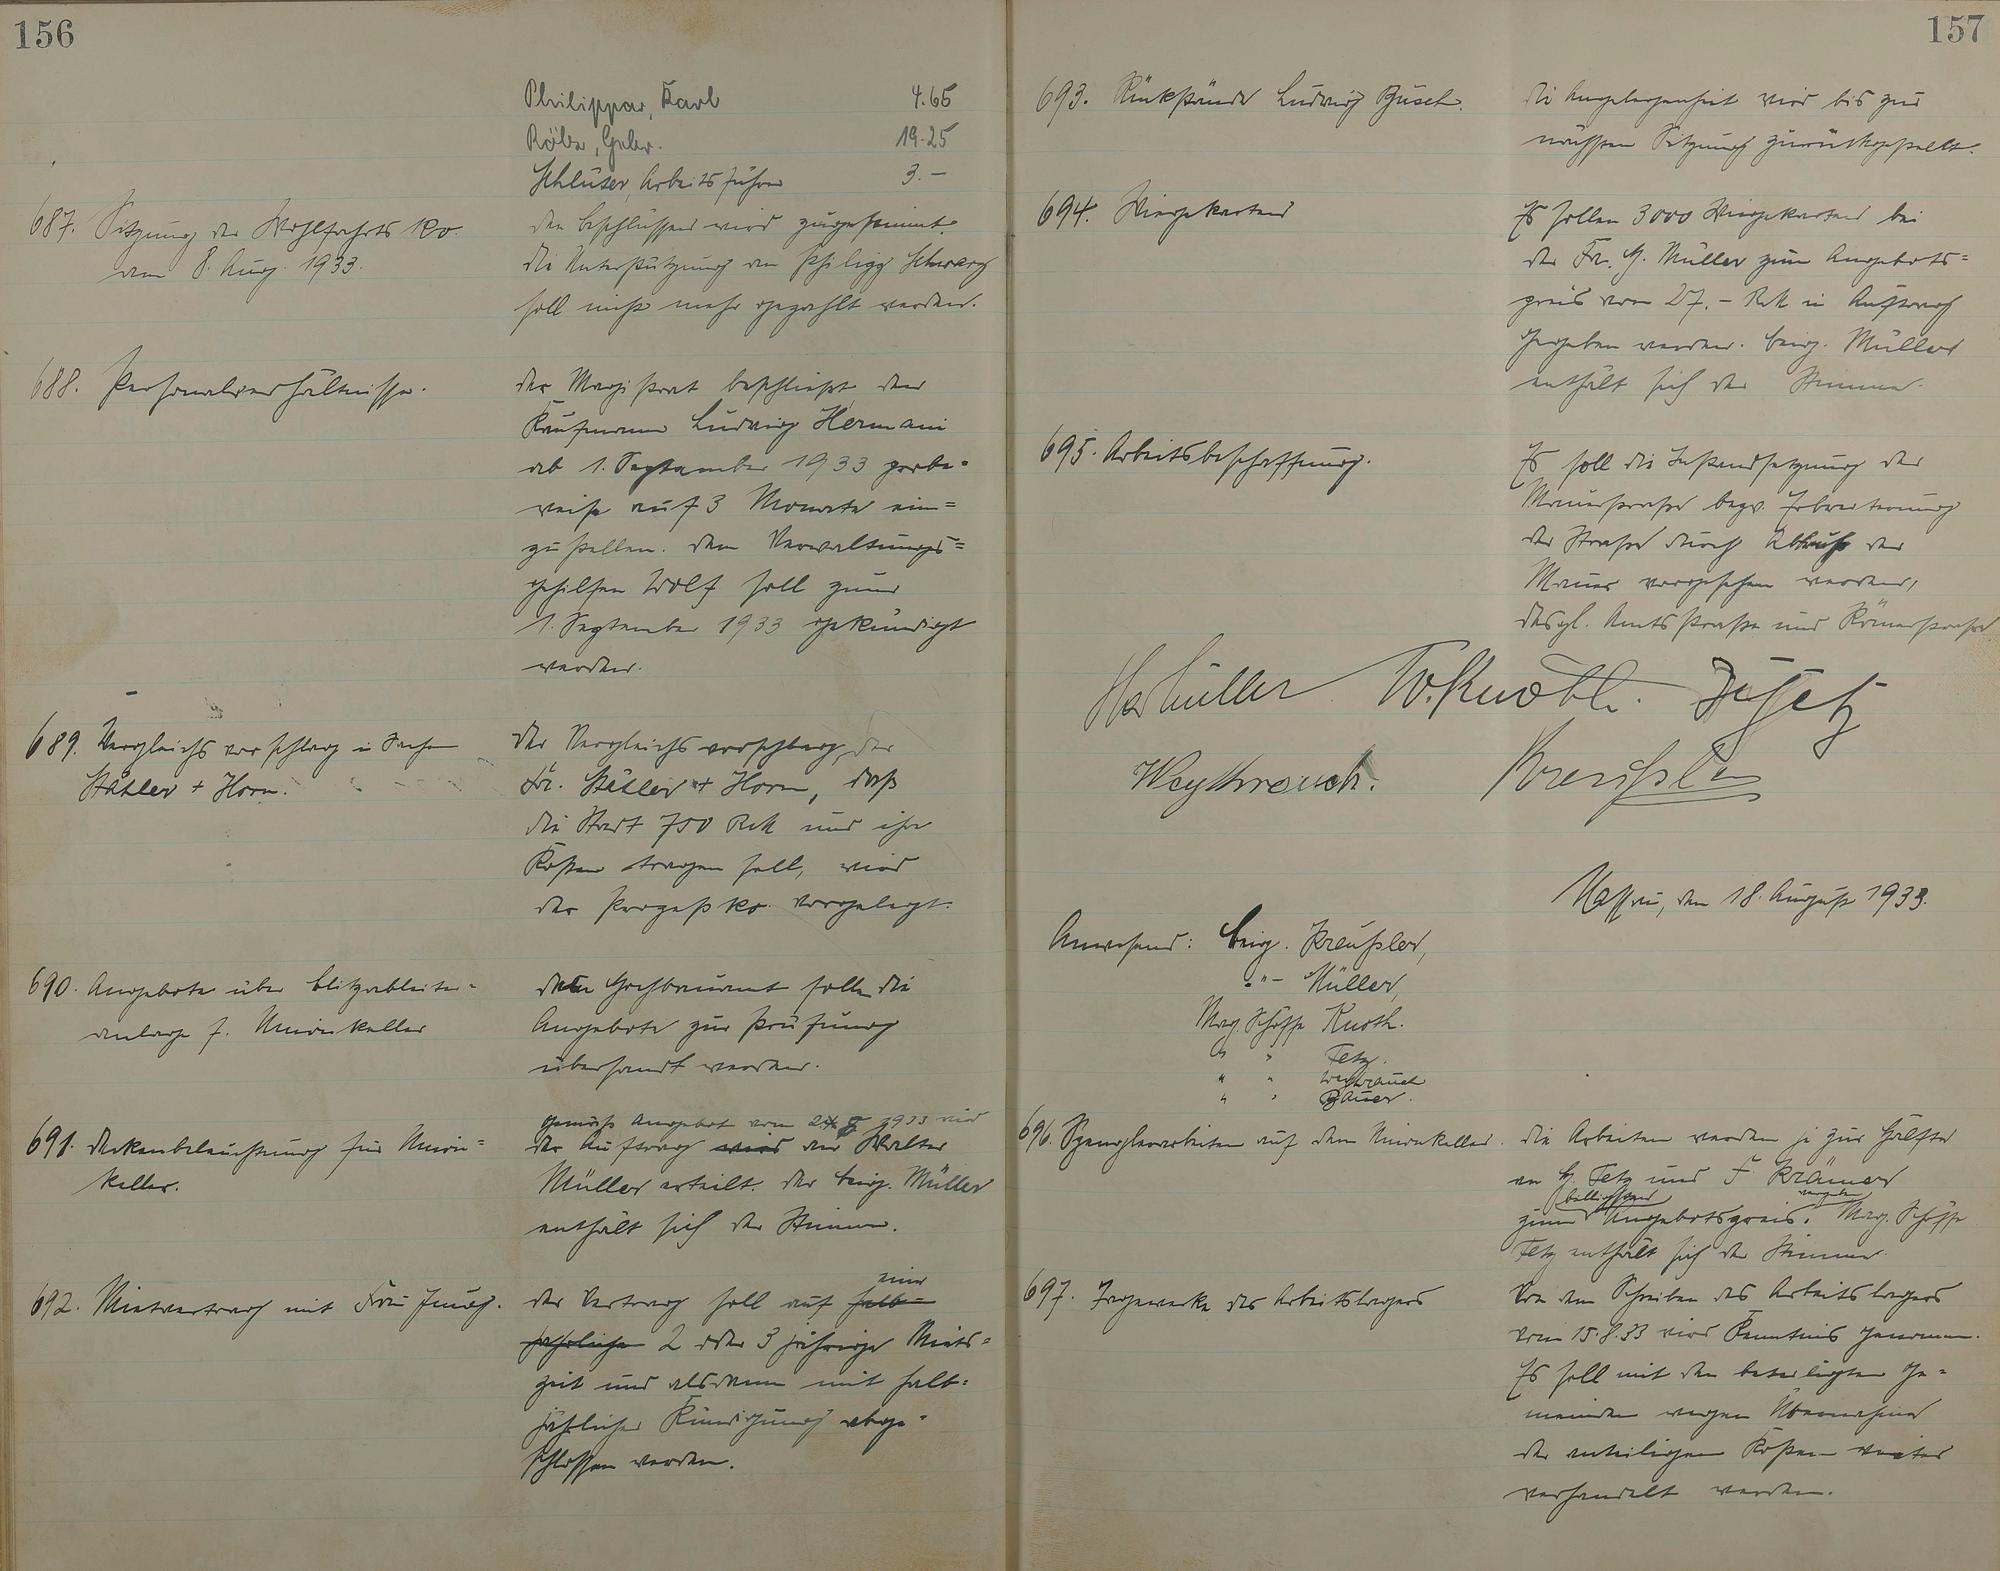 156
Philippar, Karl 4.65
Röbe, Gebr. 19.25
Schlüter, Arbeitsführer 3.—
687. Sitzung der Wohlfahrts Ko.
vom 8. Aug. 1933.
den Beschlüssen wird zugestimmt.
die Unterstützung an Philipp Schwarz
soll nicht mehr gezahlt werden.
688. Personalverhältnisse.
der Magistrat beschließt den
Kaufmann Ludwig Hermani
ab 1. September 1933 probe-
weise auf 3 Monate ein=
zustellen. dem Verwaltungs=
gehilfen Wolf soll zum
1. September 1933 gekündigt
werden.
689. Vergleichsvorschlag in Sachen
Stätler + Horn.
der Vergleichsvorschlag der
Fr. Stätler + Horn, daß
die Stadt 750 RM und ihre
Kosten tragen soll, wird
der Prozeßko. vorgelegt.
690. Angebote über Blitzableiter=
anlage f. Unionkeller
dem Hochbauamt sollen die
Angebote zur Prüfung
übersandt werden.
691. Deckenbeleuchtung für Union=
keller.
gemäß Angebot vom 1933 wird
der Auftrag wird an Walter
Müller erteilt. der Beig. Müller
enthält sich der Stimme.
692. Mietvertrag mit Frau Jung.
eine
der Vertrag soll auf halb=
jährliche 2 oder 3 jährige Miets=
zeit und alsdann mit halb=
jährlicher Kündigung abge=
schlossen werden.
157
693. Rückstände Ludwig Buset.
die Angelegenheit wird bis zur
nächsten Sitzung zurückgestellt.
694. Wiegekarten
Es sollen 3000 Wiegekarten bei
der Fr. G. Müller zum Angebots=
preis von 27.— RM in Auftrag
gegeben werden. Beig. Müller
enthält sich der Stimme.
695. Arbeitsbeschaffung.
Es soll die Instandsetzung der
Mauerstraße bezw. Erbreiterung
der Straße durch Abbruch der
Mauer vorgesehen werden,
desgl. Amtsstraße und Römerstraße
Müller W. Knoth. Fetz
Weythrauch. Kreußler
Nassau, den 18. August 1933.
Anwesend: Beig. Kreußler,
-"- Müller,
Mag. Schöffe Knoth.
" " Fetz.
" " Weythrauch
" " Bauer.
696. Spenglerarbeiten auf dem Unionkeller.
die Arbeiten werden je zur Hälfte
an G. Fetz und F Krämer
vergeben
zum Angebotspreis. Mag. Schöffe
Fetz enthält sich der Stimme.
697. Tagewerke des Arbeitslagers
Von dem Schreiben des Arbeitslagers
vom 15.8.33 wird Kenntnis genommen.
Es soll mit den beteiligten Ge=
meinden wegen Übernahme
der anteiligen Kosten weiter
verhandelt werden.